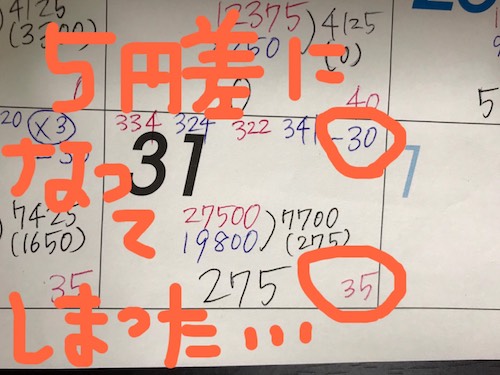 4125
12375
4125
(0)
40
5
5円差に
20 ×3 334 324 322 341 -30
31
なって
7425
(1650)
27500
19800
7700
(275)
35
275
35
しまった…